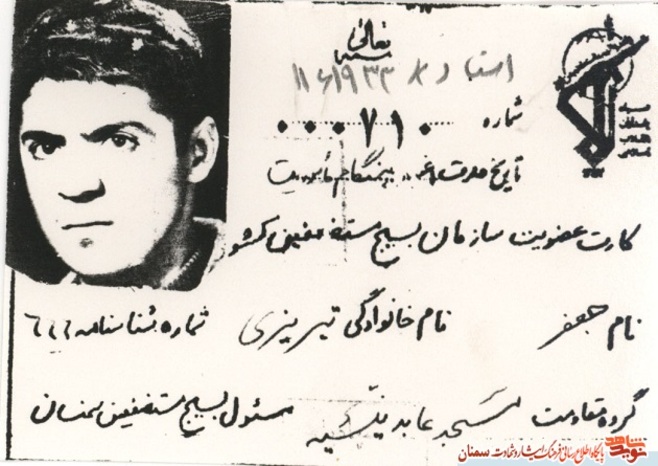 تعالی
شماره ۰۰۰۷۱۰
تاریخ صدور بهنگام مأموریت
کارت عضویت سازمان بسیج مستضعفین کشور
نام جعفر نام خانوادگی تبریزی شماره شناسنامه ۶۶۶
گروه مقاومت مسجد عابدینیه مسئول بسیج مستضعفین سمنان
نوید شاهد
پایگاه اطلاع رسانی فرهنگ ایثار و شهادت سمنان